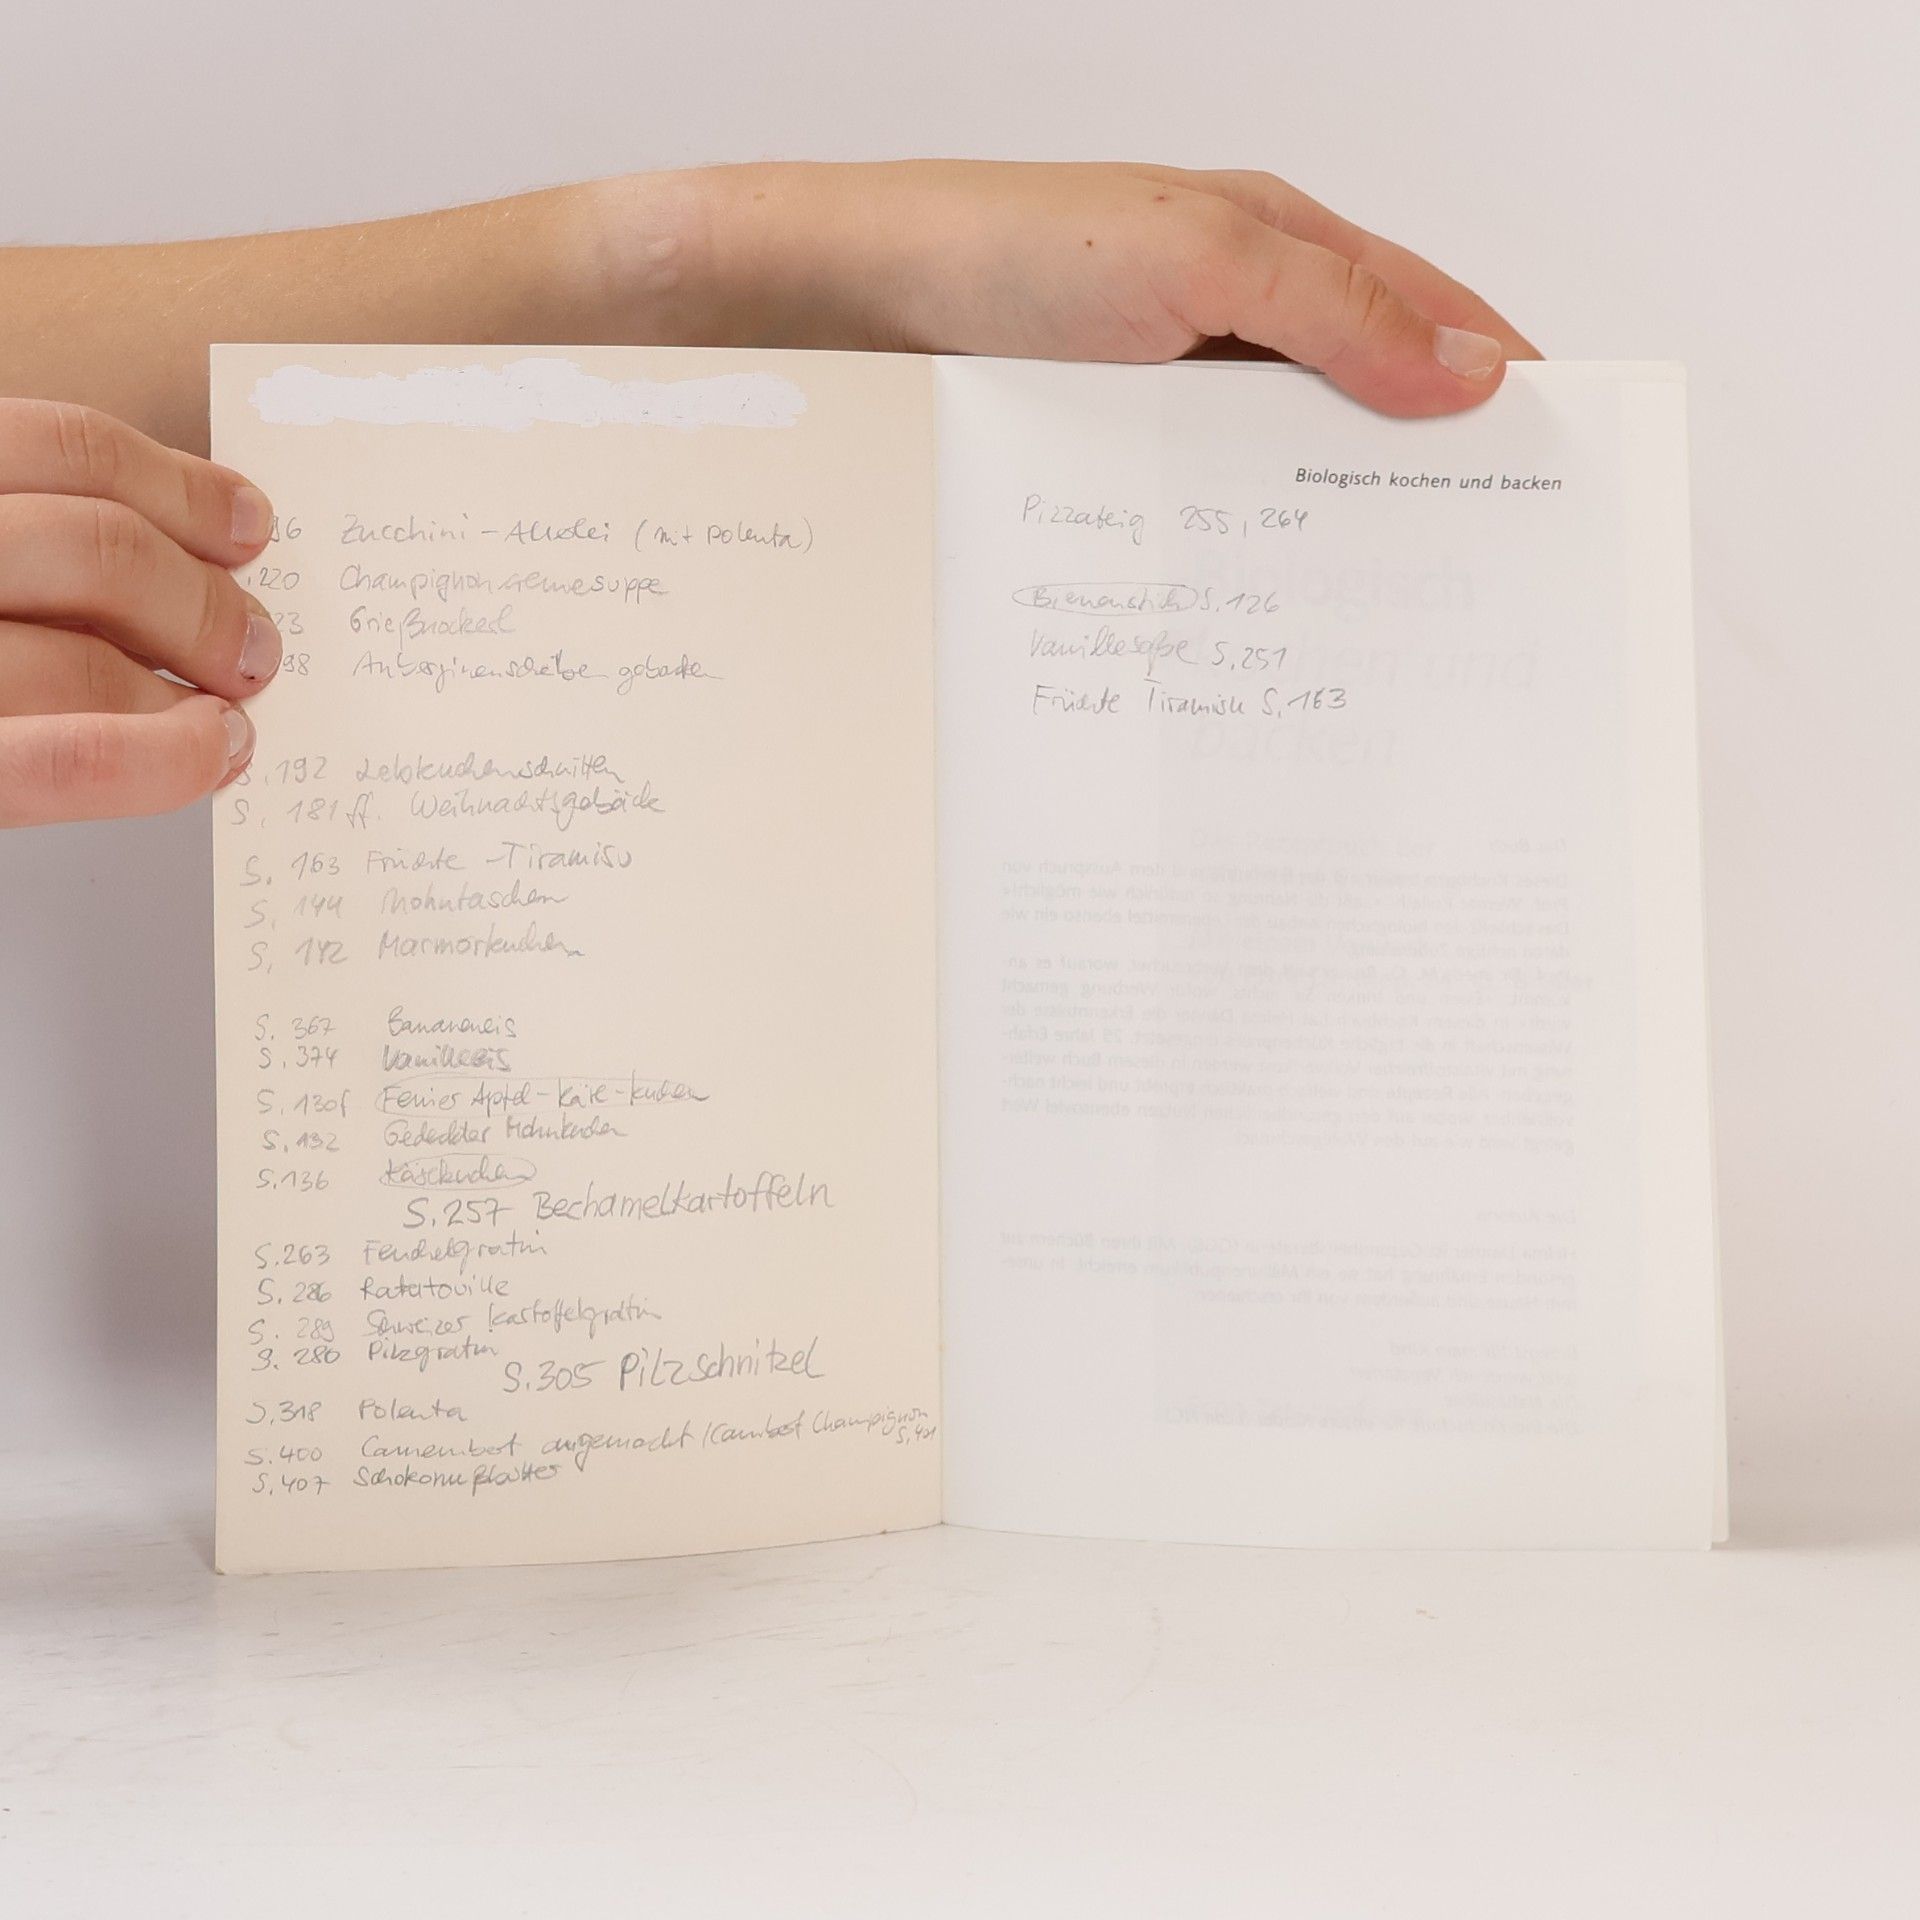 96 Zucchini - Allerlei (mit Polenta)
.220 Champignoncremesuppe
23 Grießnockerl
98 Auberginenscheiben gebacken
S. 192 Lebkuchenschnitten
S. 181 ff. Weihnachtsgebäck
S. 163 Früchte - Tiramisu
S. 144 Mohntaschen
S. 142 Marmorkuchen
S. 367 Bananeneis
S. 374 Vanilleeis
S. 130f Feiner Apfel-Käse-kuchen
S. 132 Gedeckter Mohnkuchen
S. 136 Käsekuchen
S. 257 Bechamelkartoffeln
S. 263 Fenchelgratin
S. 286 Ratatouille
S. 289 Schweizer Kartoffelgratin
S. 280 Pilzgratin
S. 305 Pilzschnitzel
S. 318 Polenta
S. 400 Camembert angemacht / Champignon
S. 401
S. 407 Schokonußblätter
Biologisch kochen und backen
Pizzateig 255, 264
Bienenstich S. 126
Vanillesoße S. 251
Früchte Tiramisu S. 163